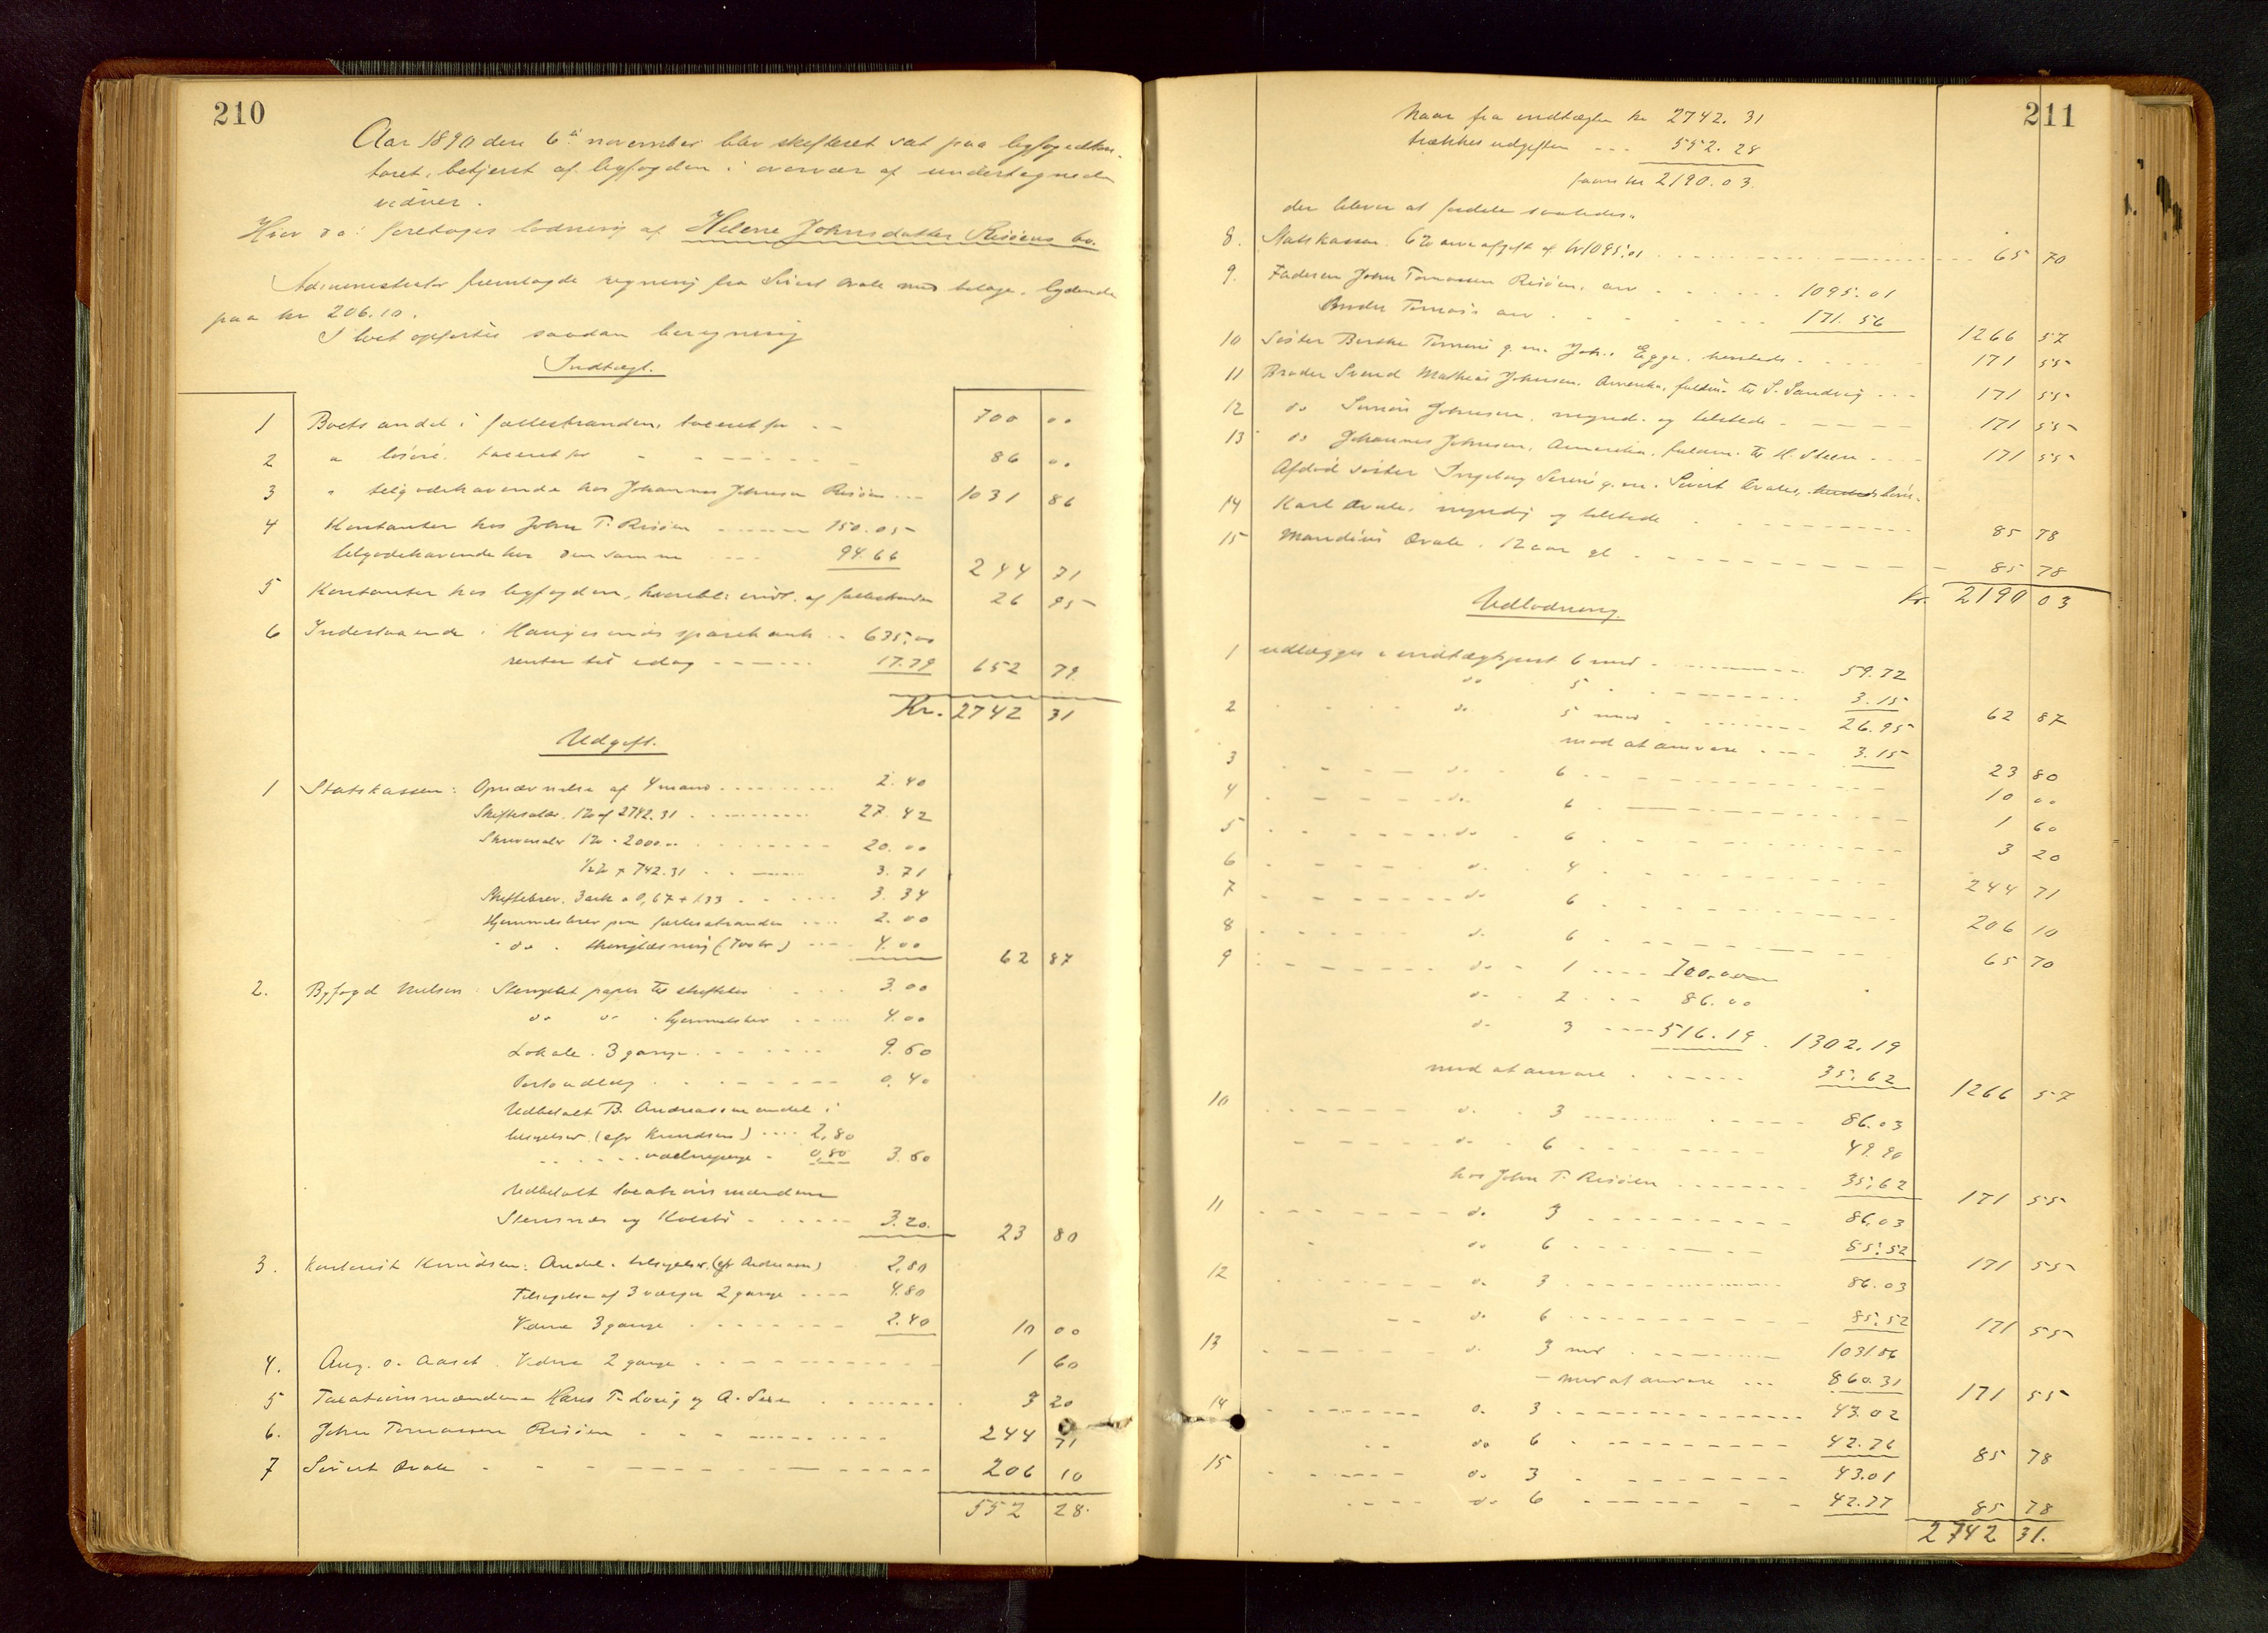 210
Aar 1890 den 6te november blev skifteret sat paa byfogedkon-
toret, betjent af byfogden i overvær af undertegnede
vidner.
Hvor da: foretoges lodning af Helene Johnsdatter Risöens bo.
Administrator fremlagde regning fra Sivert Qvale med bilage, lydende
paa kr 206.10.
I boet opförtes saadan beregning
Indtægt.
1 Boets andel i fællestranden, taxeret for - - 700 00
2 " lösöre, taxeret for - - - 86 00
3 " tilgodehavende hos Johannes Johnsen Risöen - - 1031 86
4 Kontanter hos John T. Risöen - - - 150.05
tilgodehavende hos den samme - - - 94.66 244 71
5 Kontanter hos byfogden, indt. af fællestranden 26 95
6 Indestaaende i Haugesunds sparebank - - 635,00
renter til idag - - - 17.79 652 79
Kr. 2742 31
Udgift.
1 Statskassen: Opnævnelse af 4 mænd - - - 2.40
Skiftesalær 1% af 2742.31 - - - 27.42
Skriversalær 1% - 2000.00 - - - 20.00
1/2% " 742.31 - - - 3.71
Skiftebrev, 3 ark a 0,67 + 1.33 - - - 3.34
Hjemmelsbrev paa fællestranden - - - 2.00
" do " thinglæsning (700 kr) - - - 4.00 62 87
2. Byfogd Nielsen: Stemplet papir til skiftebrev - - - 3.00
do do " hjemmelsbrev - - - 4.00
Lokale 3 gange - - - 9.60
Portoudlæg - - - 0.40
Udbetalt B. Andreassen andel i
tilsigelser (cfr Knudsen) - - - 2,80
- - - - 0,80 3.60
Udbetalt taxationsmændene
Stensnæs og - - - 3.20 23 80
3. Kontorist Knudsen: Andel i tilsigelser (cfr Andreassen) 2,80
Tilsigelse af 3 værger 2 gange - - - 4.80
Vidne 3 gange - - - 2.40 10 00
4. Aug. O. Aaset. Vidne 2 gange - - - 1 60
5 Taxationsmændene Hans T. Lovig og A. - - - 3 20
6. John Tomassen Risöen - - - 244 71
7 Sivert Qvale - - - 206 10
552 28.
211
Naar fra indtægten kr 2742.31
trækkes udgiften - - - 552.28
faaes kr 2190.03.
der bliver at fordele saaledes:
8. Statskassen 6% arveafgift af kr 1095.01 - - - 65 70
9. Faderen John Tomassen Risöen, arv - - - 1095.01
Under Tomas's arv - - - 171.56 1266 57
10 Söster Berthe Tomine g. m. Joh. Egge, hersteds - - - 171 55
11 Broder Svend Mathias Johnsen, Amerika, fuldm. til S. Sandvig - - - 171 55
12 do Johnsen, myndig og tilstede - - - 171 55
13 do Johannes Johnsen, Amerika, fuldm. til H. Steen - - - 171 55
Afdöd söster Ingeborg Serine g. m. Sivert Qvales, börn:
14 Karl Qvale, myndig og tilstede - - - 85 78
15 Mandius Qvale, 12 aar gl - - - 85 78
Kr. 2190 03
Udlodning.
1 udlægges i indtægtspost 6 med - - - 59.72
do 5 - - - 3.15 62 87
2 do 5 med - - - 26.95
med at ansvare - - - 3.15 23 80
3 - - - do 6 - - - 10 00
4 - - - do 6 - - - 1 60
5 - - - do 6 - - - 3 20
6 - - - do 4 - - - 244 71
7 - - - do 6 - - - 206 10
8 - - - do 6 - - - 65 70
9 - - - do 1 - - - 700.00
do 2 - - - 86.00
do 3 - - - 516.19 1302.19
med at ansvare - - - 35.62 1266 57
10 - - - do 3 - - - 86.03
- - - do 6 - - - 49.90
hos John T. Risöen - - - 35,62 171 55
11 - - - do 3 - - - 86,03
do 6 - - - 85.52 171 55
12 - - - do 3 - - - 86.03
- - do 6 - - - 85.52 171 55
13 - - - do 3 med - - - 1031.86
- med at ansvare - - - 860.31 171 55
14 - - - do 3 - - - 43.02
- - do 6 - - - 42.76 85 78
15 - - - do 3 - - - 43.01
- - - do 6 - - - 42.77 85 78
2742 31.